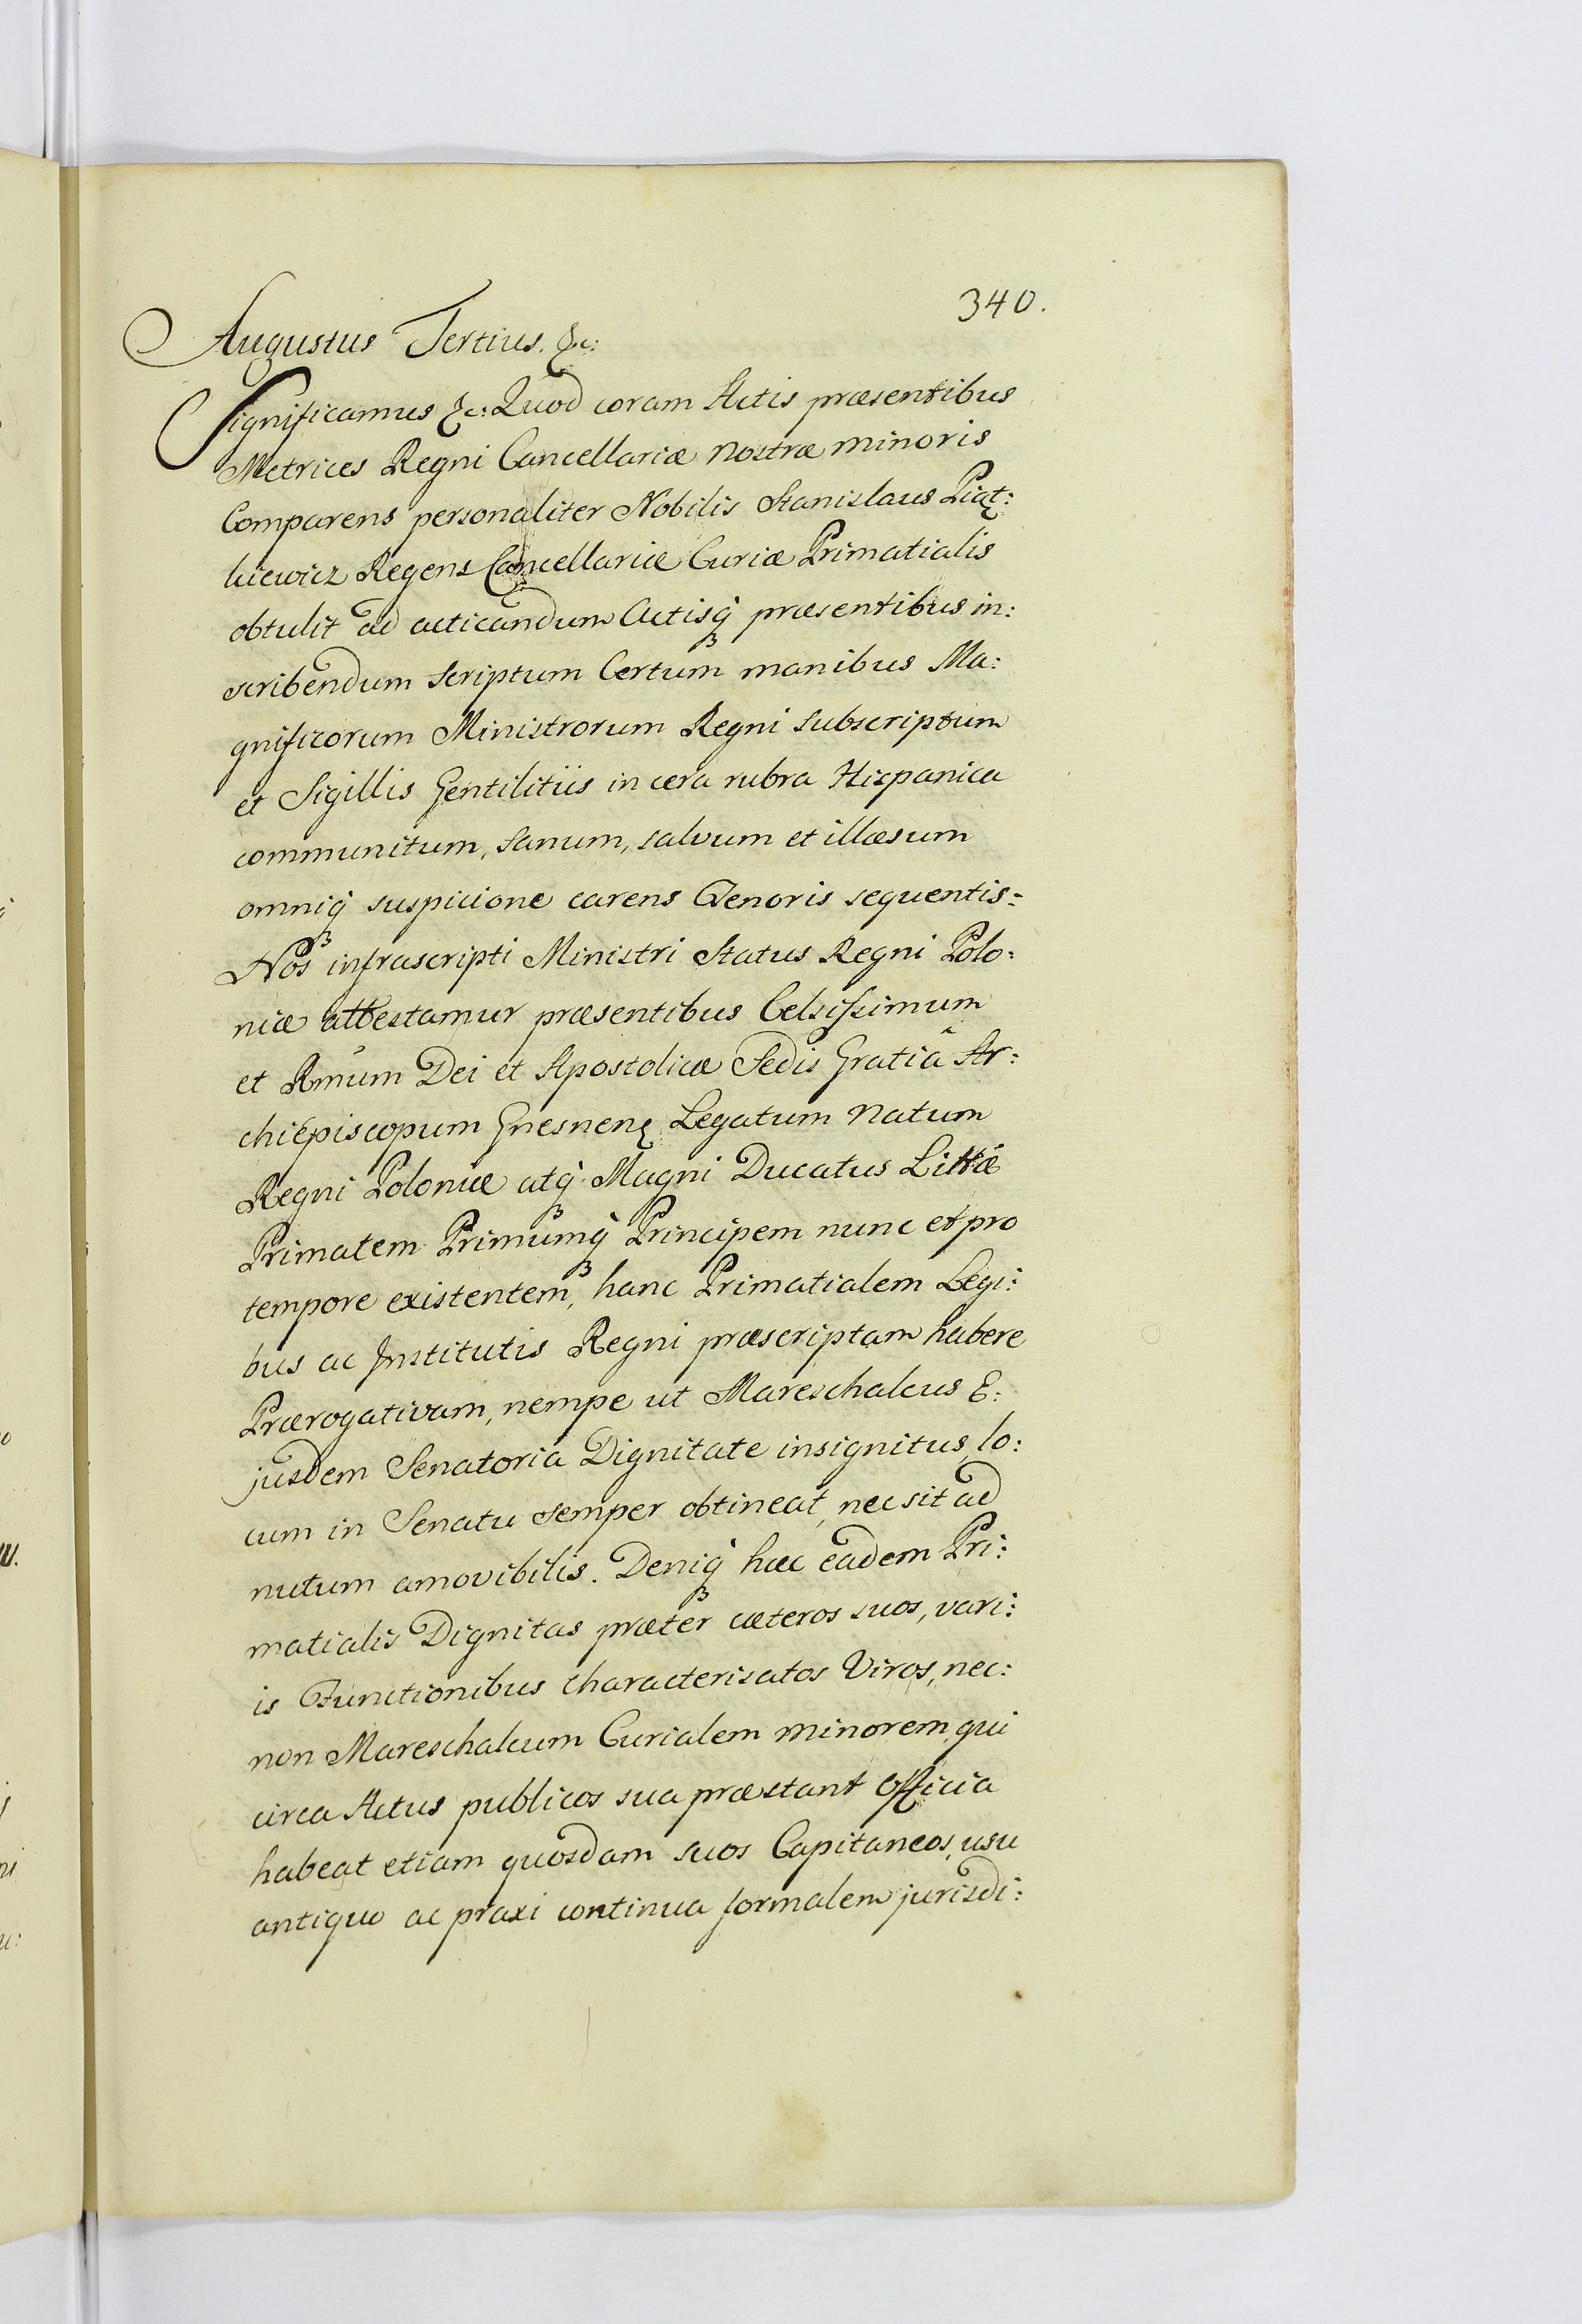 340.
Augustus Tertius. &c:
Significamus &c: Quod coram Actis præsentibus
Metrices Regni Cancellariæ nostræ minoris
Comparens personaliter Nobilis Stanislaus Piąt:
kiewicz Regens Cancellariæ Curiæ Primatialis
obtulit ad acticandum Actisq̀ præsentibus in:
scribendum scriptum Certum manibus Ma:
gnificorum Ministrorum Regni subscriptum
et Sigillis Gentilitiis in cera rubra Hispanica
communitum, sanum, salvum et illæsum
omniq̀ suspicione carens Tenoris sequentis:
Nos infrascripti Ministri Status Regni Polo:
niæ attestamur præsentibus Celsissimum
et Rm̃um Dei et Apostolicæ Sedis Gratiâ Ar:
chiEpiscopum Gnesnenę Legatum Natum
Regni Poloniæ atq̀ Magni Ducatus Littæ̃
Primatem Primumq̀ Principem nunc et pro
tempore existentem, hanc Primatialem Legi:
bus ac Institutis Regni præscriptam habere
Prærogativam, nempe ut Mareschalcus E:
jusdem Senatoria Dignitate insignitus, lo:
cum in Senatu semper obtineat, nec sit ad
nutum amovibilis. Deniq̀ hæc eadem Pri:
matialis Dignitas præter cæteros suos, vari:
is Functionibus characterisatos Viros, nec:
non Mareschalcum Curialem minorem, qui
circa Actus publicos sua præstant Officia
habeat etiam quosdam suos Capitaneos, usu
antiquo ac praxi continua formalem jurisdi: